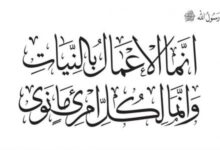 رسول الله ﷺ
إنما الأعمال بالنيات
وإنما لكل امرئ ما نوى